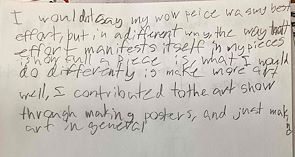 I would not say my wow peice was my best
effort, but in a different way, the way that
effort manifests itself in my pieces
is how full a piece is, what I would
do differently is make more art
well, I contributed to the art show
through making posters, and just making
art in general